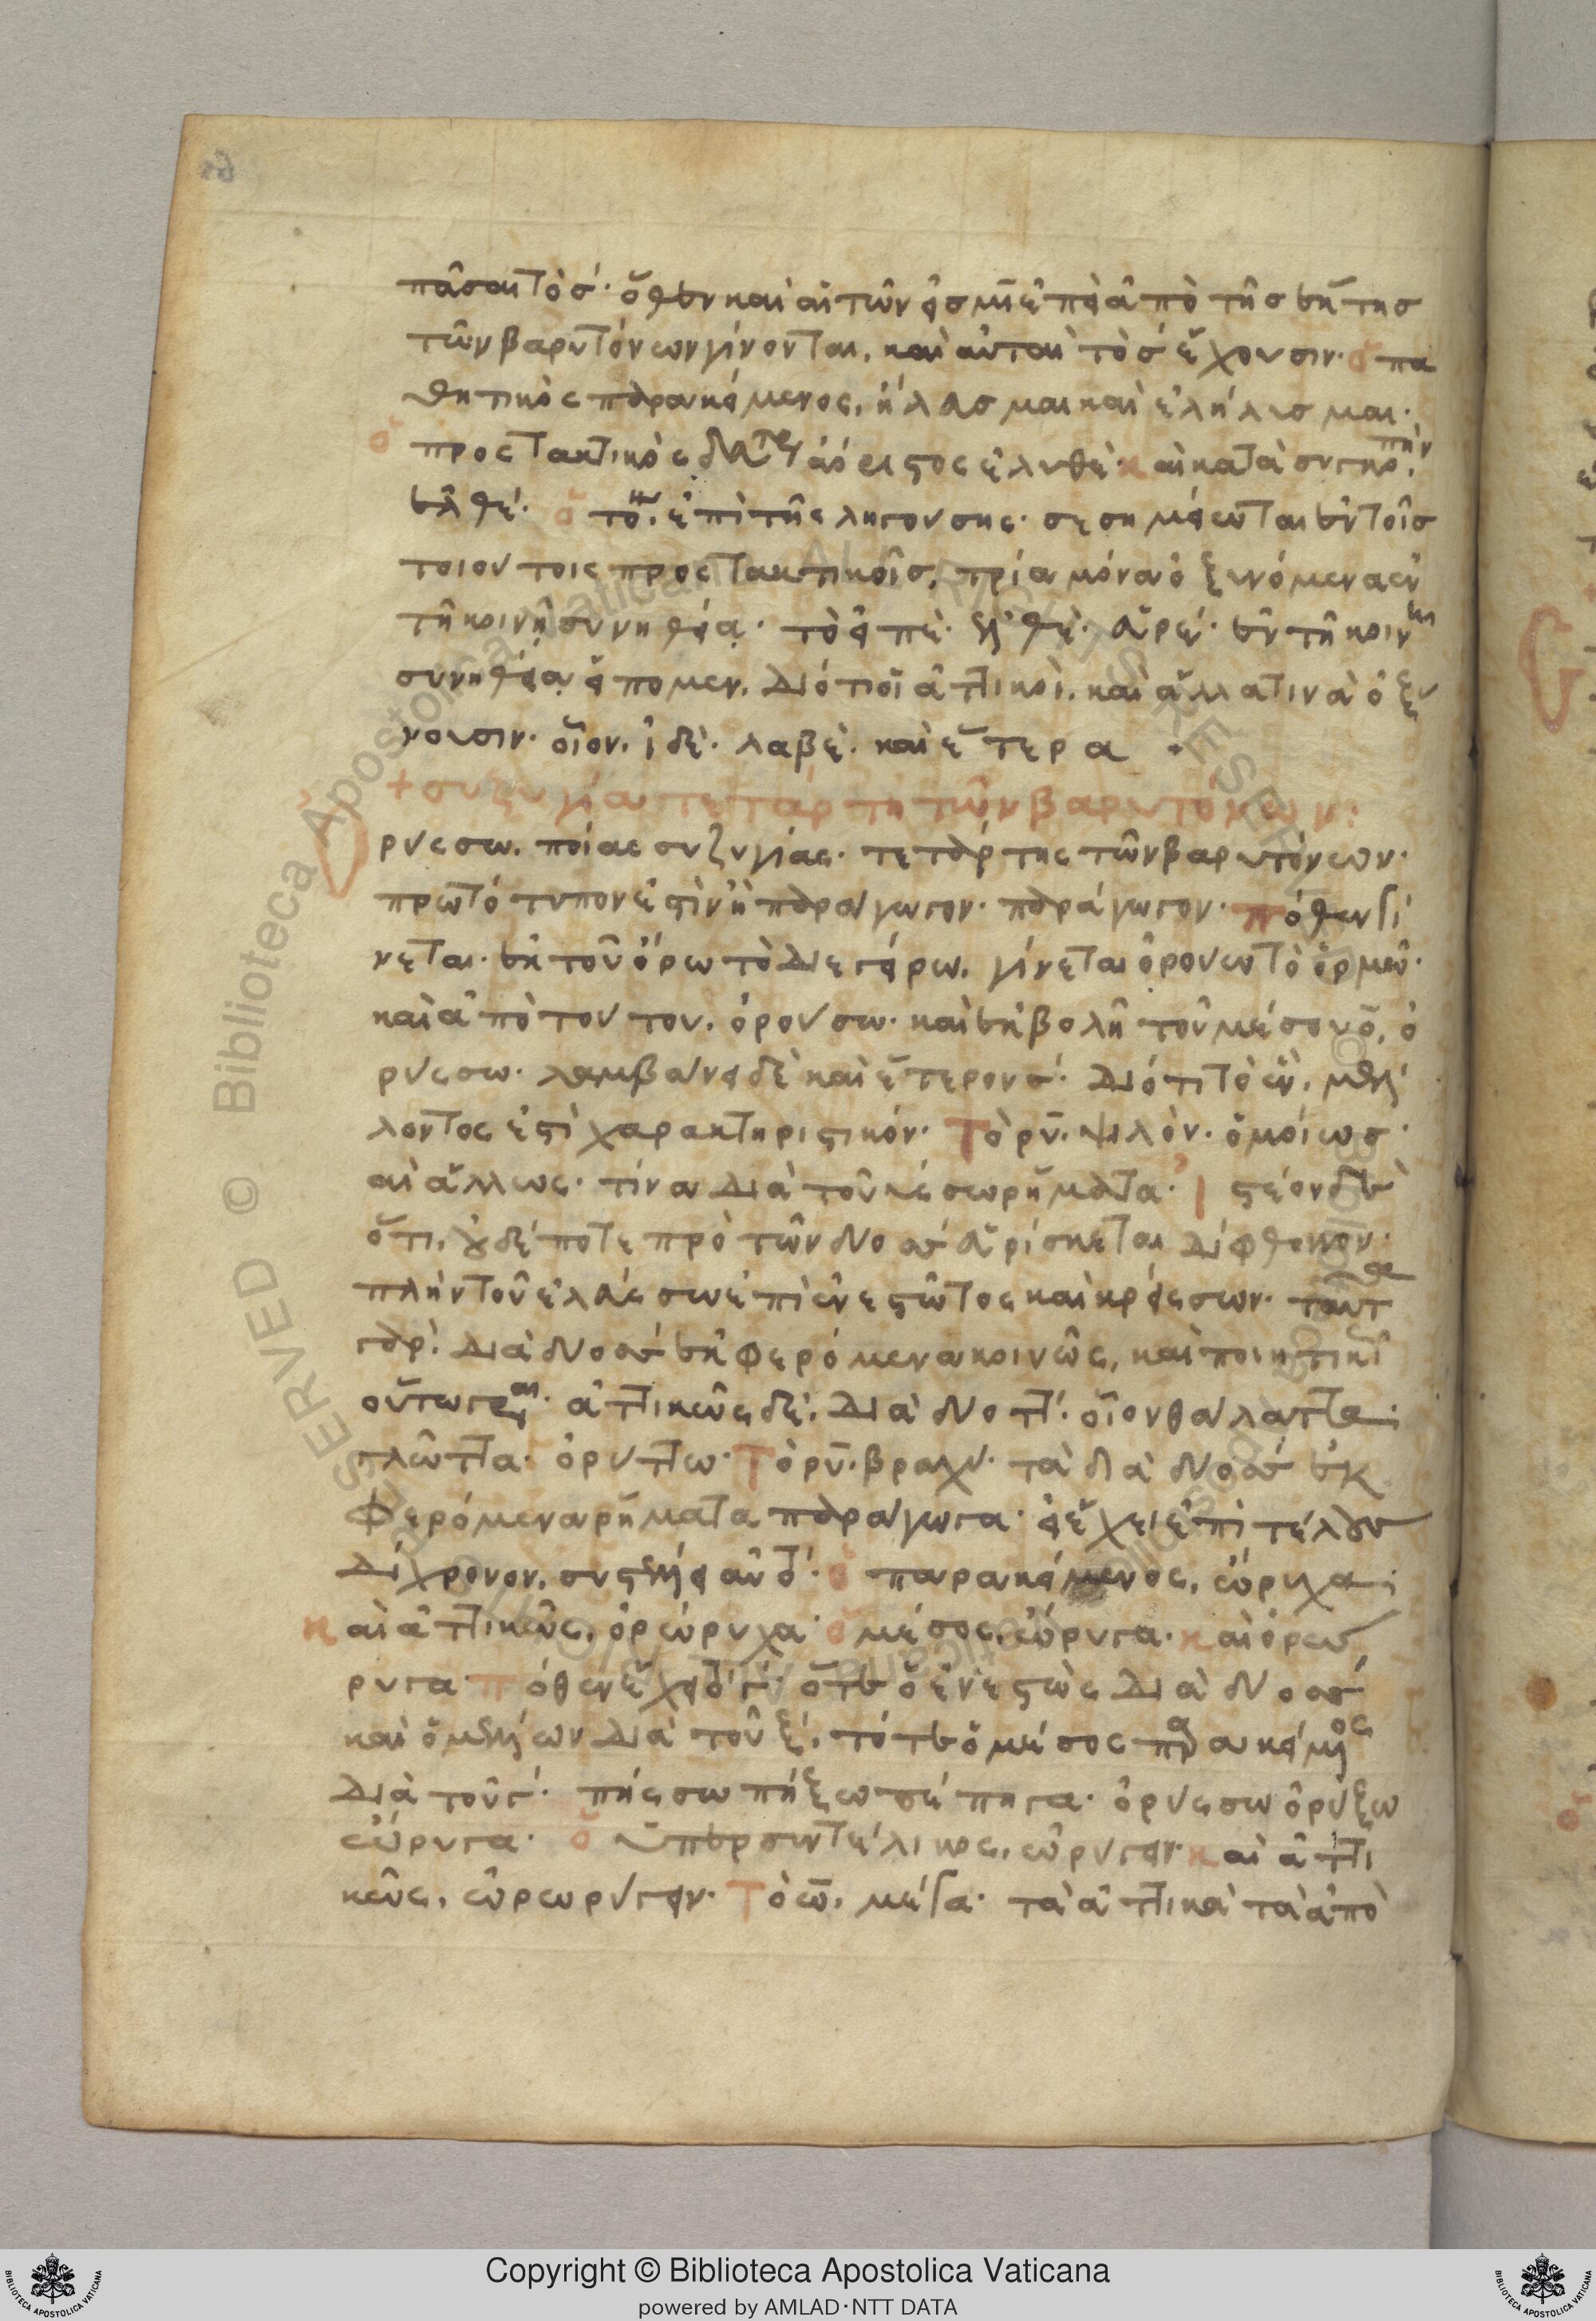 πᾶσαι τὸ σ´· ὅθεν καὶ αἱ τῶν εἰς μι ἐπεὶ ἀπὸ τῆς ἕκτης
τῶν βαρυτόνων γίνονται, καὶ αὗται τὸ σ´ ἔχουσιν· ὁ πα
θητικὸς παρακείμενος, ἤλασμαι καὶ ἐλήλασμαι·
ὁ προστακτικὸς ἀόριστος ἐλυθὲ καὶ κατὰ συγκοπὴν,
ἐλθέ· ἐπὶ τῆς ληγούσης· σεσημείωται ἐν τοῖς
τοιούτοις προστακτικοῖς, τρία μόνα ὀξυνόμενα ἐν
τῇ κοινῇ συνηθείᾳ· τὸ εἰπὲ· ἐλθὲ· εὑρέ· ἐν τῇ κοινῇ
συνηθείᾳ εἴπομεν, διότι οἱ ἀττικοὶ, καὶ ἄλλα τινὰ ὀξύ
νουσιν· οἷον, ἰδὲ· λαβὲ· καὶ ἕτερα
+ συζυγία τετάρτη τῶν βαρυτόνων:
ρύσσω, ποίας συζυγίας· τετάρτης τῶν βαρυτόνων·
πρωτότυπόν ἐστιν ἢ παράγωγον· παράγωγον· πόθεν γί
νεται· ἐκ τοῦ ὄρω τὸ διεγείρω, γίνεται ὀρούω τὸ ὁρμῶ·
καὶ ἀπὸ τούτου, ὀρούσω· καὶ ἐκβολῇ τοῦ μέσου ο, ὀ
ρύσσω· λαμβάνει δὲ καὶ ἕτερον σ´· διότι τὸ ἓν, μέλ
λοντός ἐστι χαρακτηριστικόν· Τὸ ρυ, ψιλόν· ὁμοίως·
αι ἄλλως· τίνα διὰ τοῦ ύσσω ρήματα· ἰστέον δὲ
ὅτι, οὐδέποτε πρὸ τῶν δύο σσ εὑρίσκεται δίφθογγον·
πλὴν τοῦ ἐλάσσω ἐπὶ ἐνεστῶτος καὶ κρείσσων· ταῦτα
γάρ· διὰ δύο σσ ἐκφερόμενα κοινῶς, καὶ ποιητικῶς
οὕτω γε· ἀττικῶς δὲ, διὰ δύο ττ· οἷον θάλαττα·
γλῶττα· ὀρύττω· Τὸ ρυ, βραχύ· τὰ διὰ δύο σσ ἐκ
φερόμενα ρήματα παράγωγα· εἰ ἔχει ἐπὶ τέλους
δίχρονον, συστέλλει αὐτό· ὁ παρακείμενος, ὤρυχα·
καὶ ἀττικῶς, ὀρώρυχα· ὁ μέσος, ὤρυγα· καὶ ὀρώ
ρυγα· πόθεν ἔχει τὸ γ· ὅτε ὁ ἐνεστὼς διὰ δύο σσ
καὶ ὁ μέλλων διὰ τοῦ ξ, τότε ὁ μέσος παρακείμενος
διὰ τοῦ γ· πήσσω πήξω πέπηγα· ὀρύσσω ὀρύξω
ὤρυγα· ὁ ὑπερσυντέλικος, ὠρύγειν· καὶ ἀττι
κῶς, ὠρωρύγειν· Τὸ ω, μέγα· τὰ ἀττικὰ τὰ ἀπὸ
Copyright © Biblioteca Apostolica Vaticana
powered by AMLAD·NTT DATA